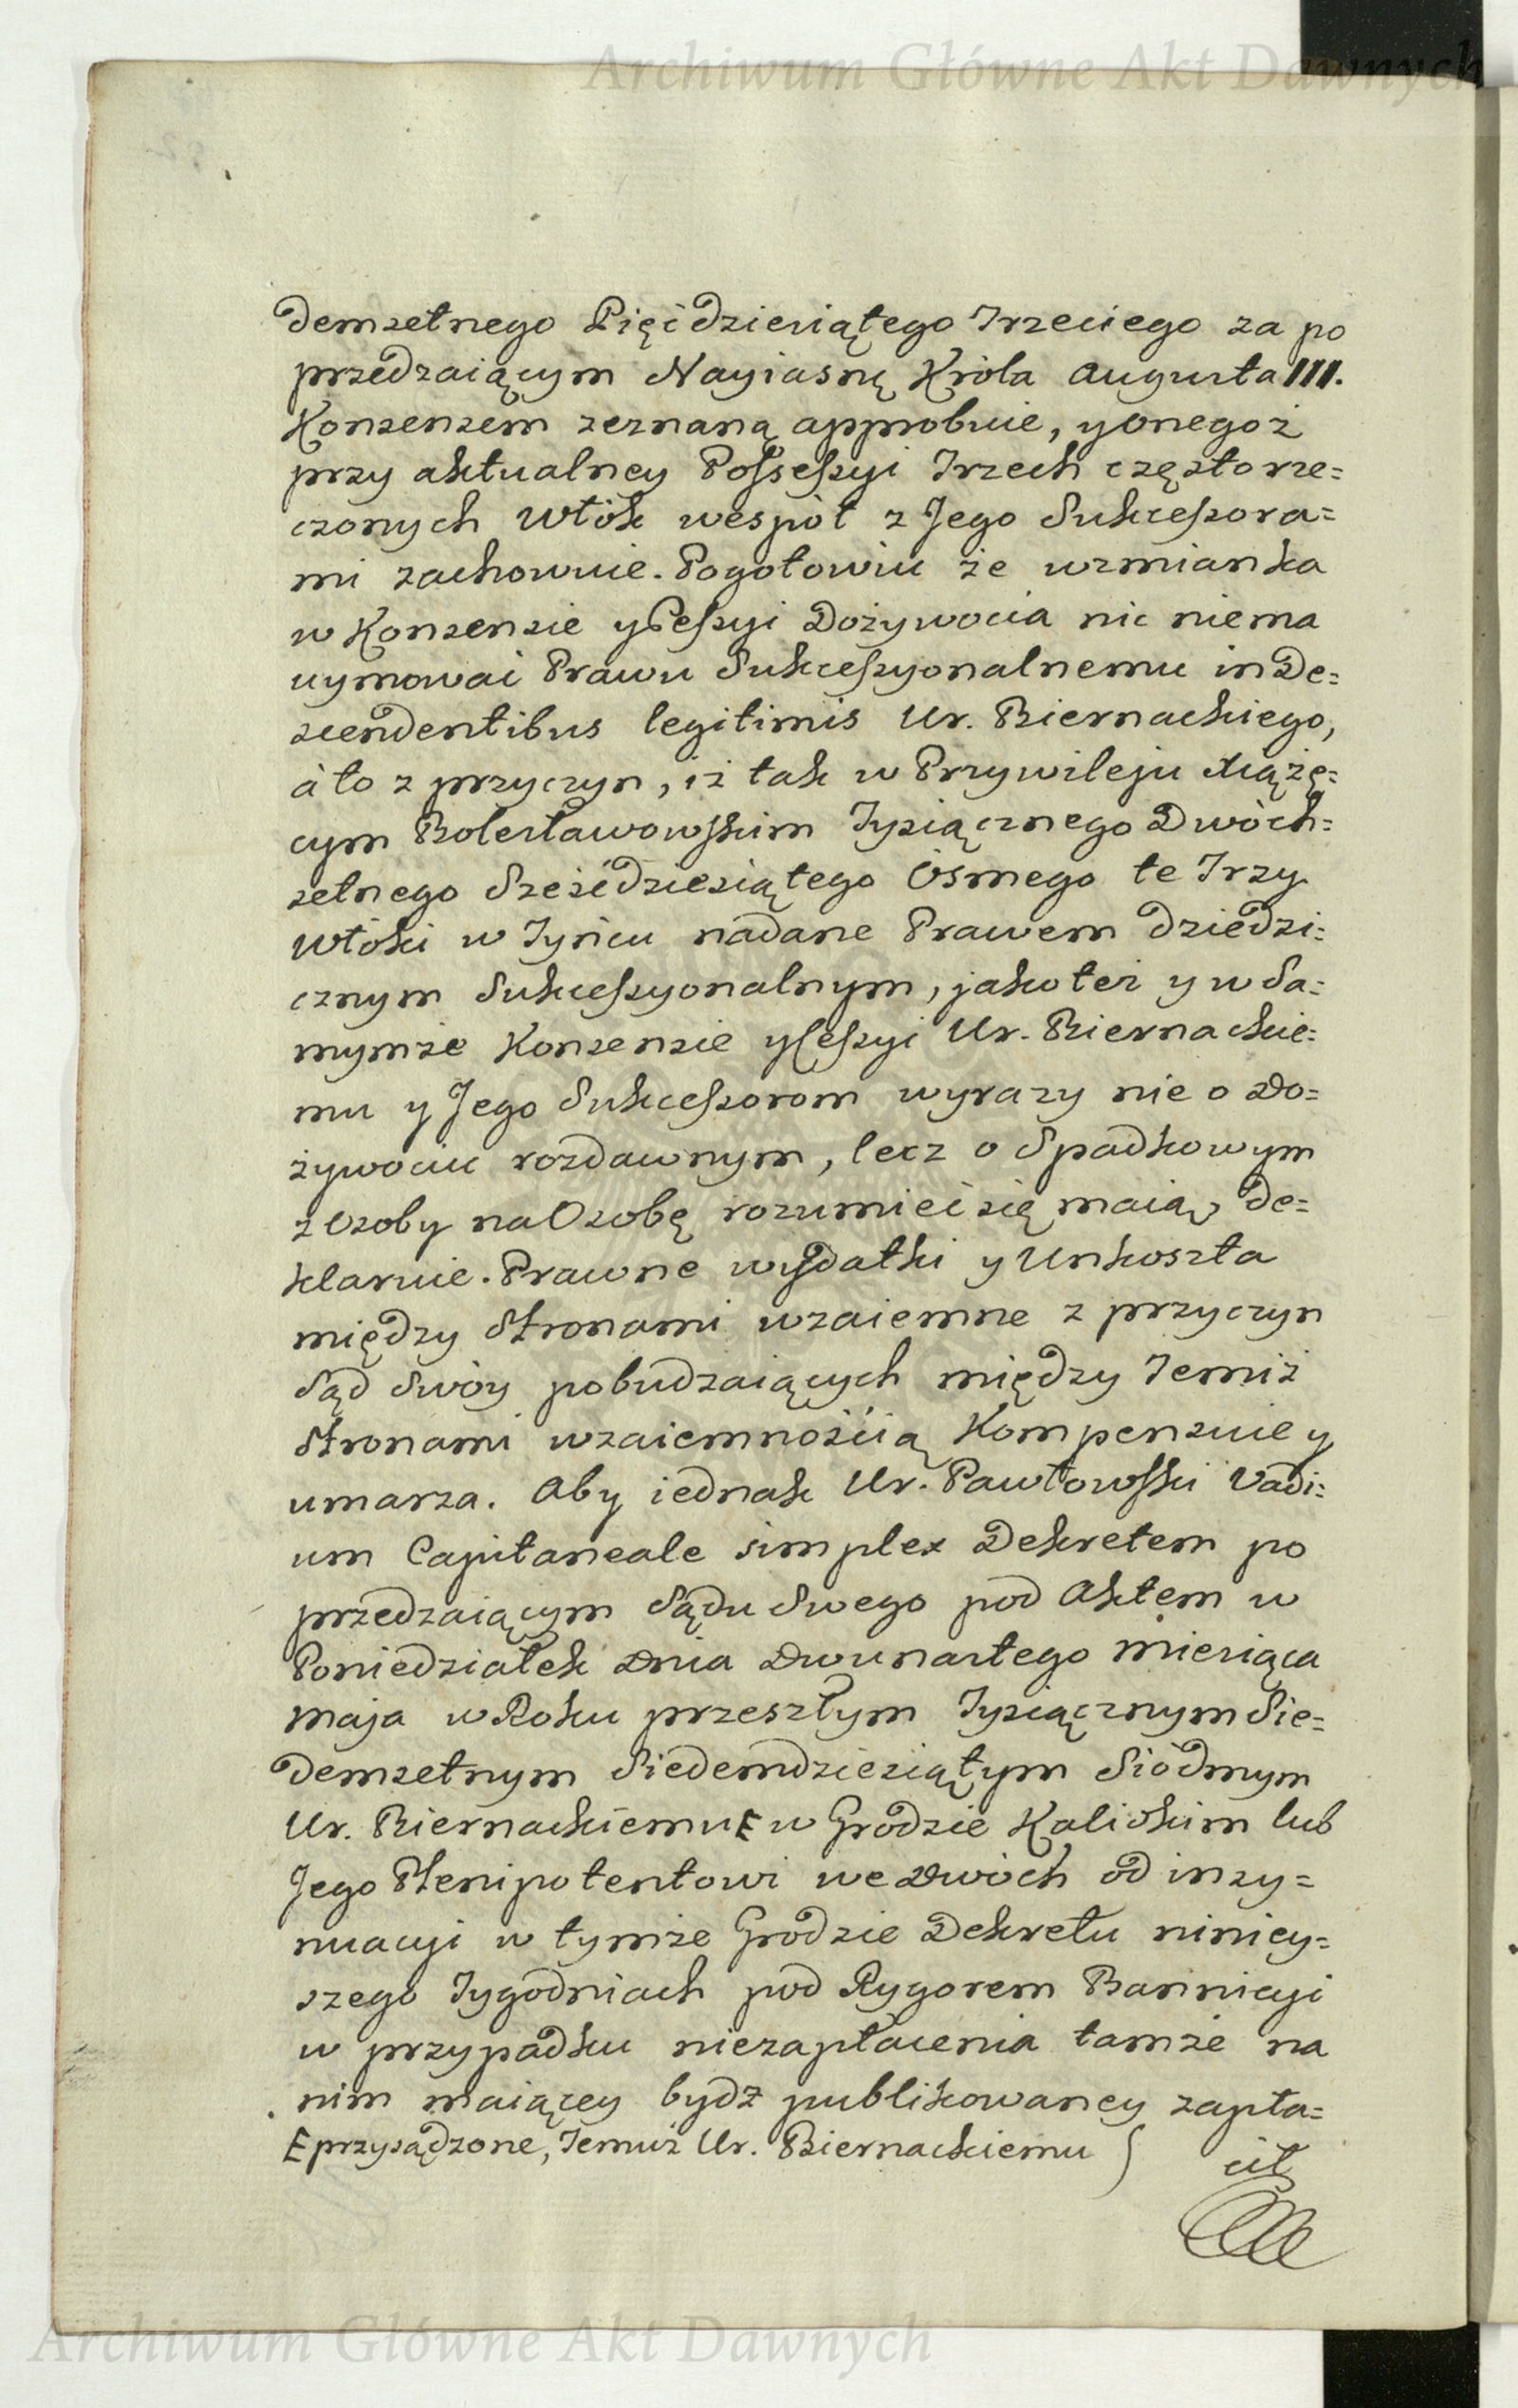 Archiwum Główne Akt Dawnych
demsetnego Pięćdziesiątego Trzeciego za po
przedzaiącym Nayiasnę Króla Augusta III.
Konsensem zeznaną approbuie, y onegoż
przy aktualney Possessyi Trzech częstorze=
czonych Włók wespół z Jego Sukcessora=
mi zachowuie. Pogotowiu że wzmianka
w Konsensie y Cessyi Dożywocia nic niema
uymować Prawu Sukcessyonalnemu in De=
scendentibus legitimis Ur. Biernackiego,
à to z przyczyn, iż tak w Przywileju Xiążę=
cym Bolesławowskim Tysiącznego Dwóch=
setnego Sześćdziesiątego Osmego te Trzy
Włóki w Tyńcu nadane Prawem dziedzi=
cznym Sukcessyonalnym, jako też y w Sa=
mymże Konsensie y Cessyi Ur. Biernackie=
mu y Jego Sukcessorom wyrazy nie o Do=
żywociu rozdawnym, lecz o Spadkowym
z Osoby na Osobę rozumieć się maią, de=
klaruie. Prawne wydatki y Unkoszta
między Stronami wzaiemne z przyczyn
Sąd Swóy pobudzaiących między Temiż
Stronami wzaiemnością Kompensuie y
umarza. Aby iednak Ur. Pawłowski Vadi=
um Capitaneale simplex Dekretem po
przedzaiącym Sądu Swego pod Aktem w
Poniedziałek Dnia Dwunastego Miesiąca
Maja w Roku przeszłym Tysiącznym Sie=
demsetnym Siedemdziesiątym Siódmym
Ur. Biernackiemu E w Grodzie Kaliskim lub
Jego Plenipotentowi we Dwóch od insy=
nuacyi w tymże Grodzie Dekretu niniey=
szego Tygodniach pod Rygorem Bannicyi
w przypadku niezapłacenia tamże na
nim maiącey bydź publikowaney zapła=
E przysądzone, Temuż Ur. Biernackiemu
cił
Archiwum Główne Akt Dawnych